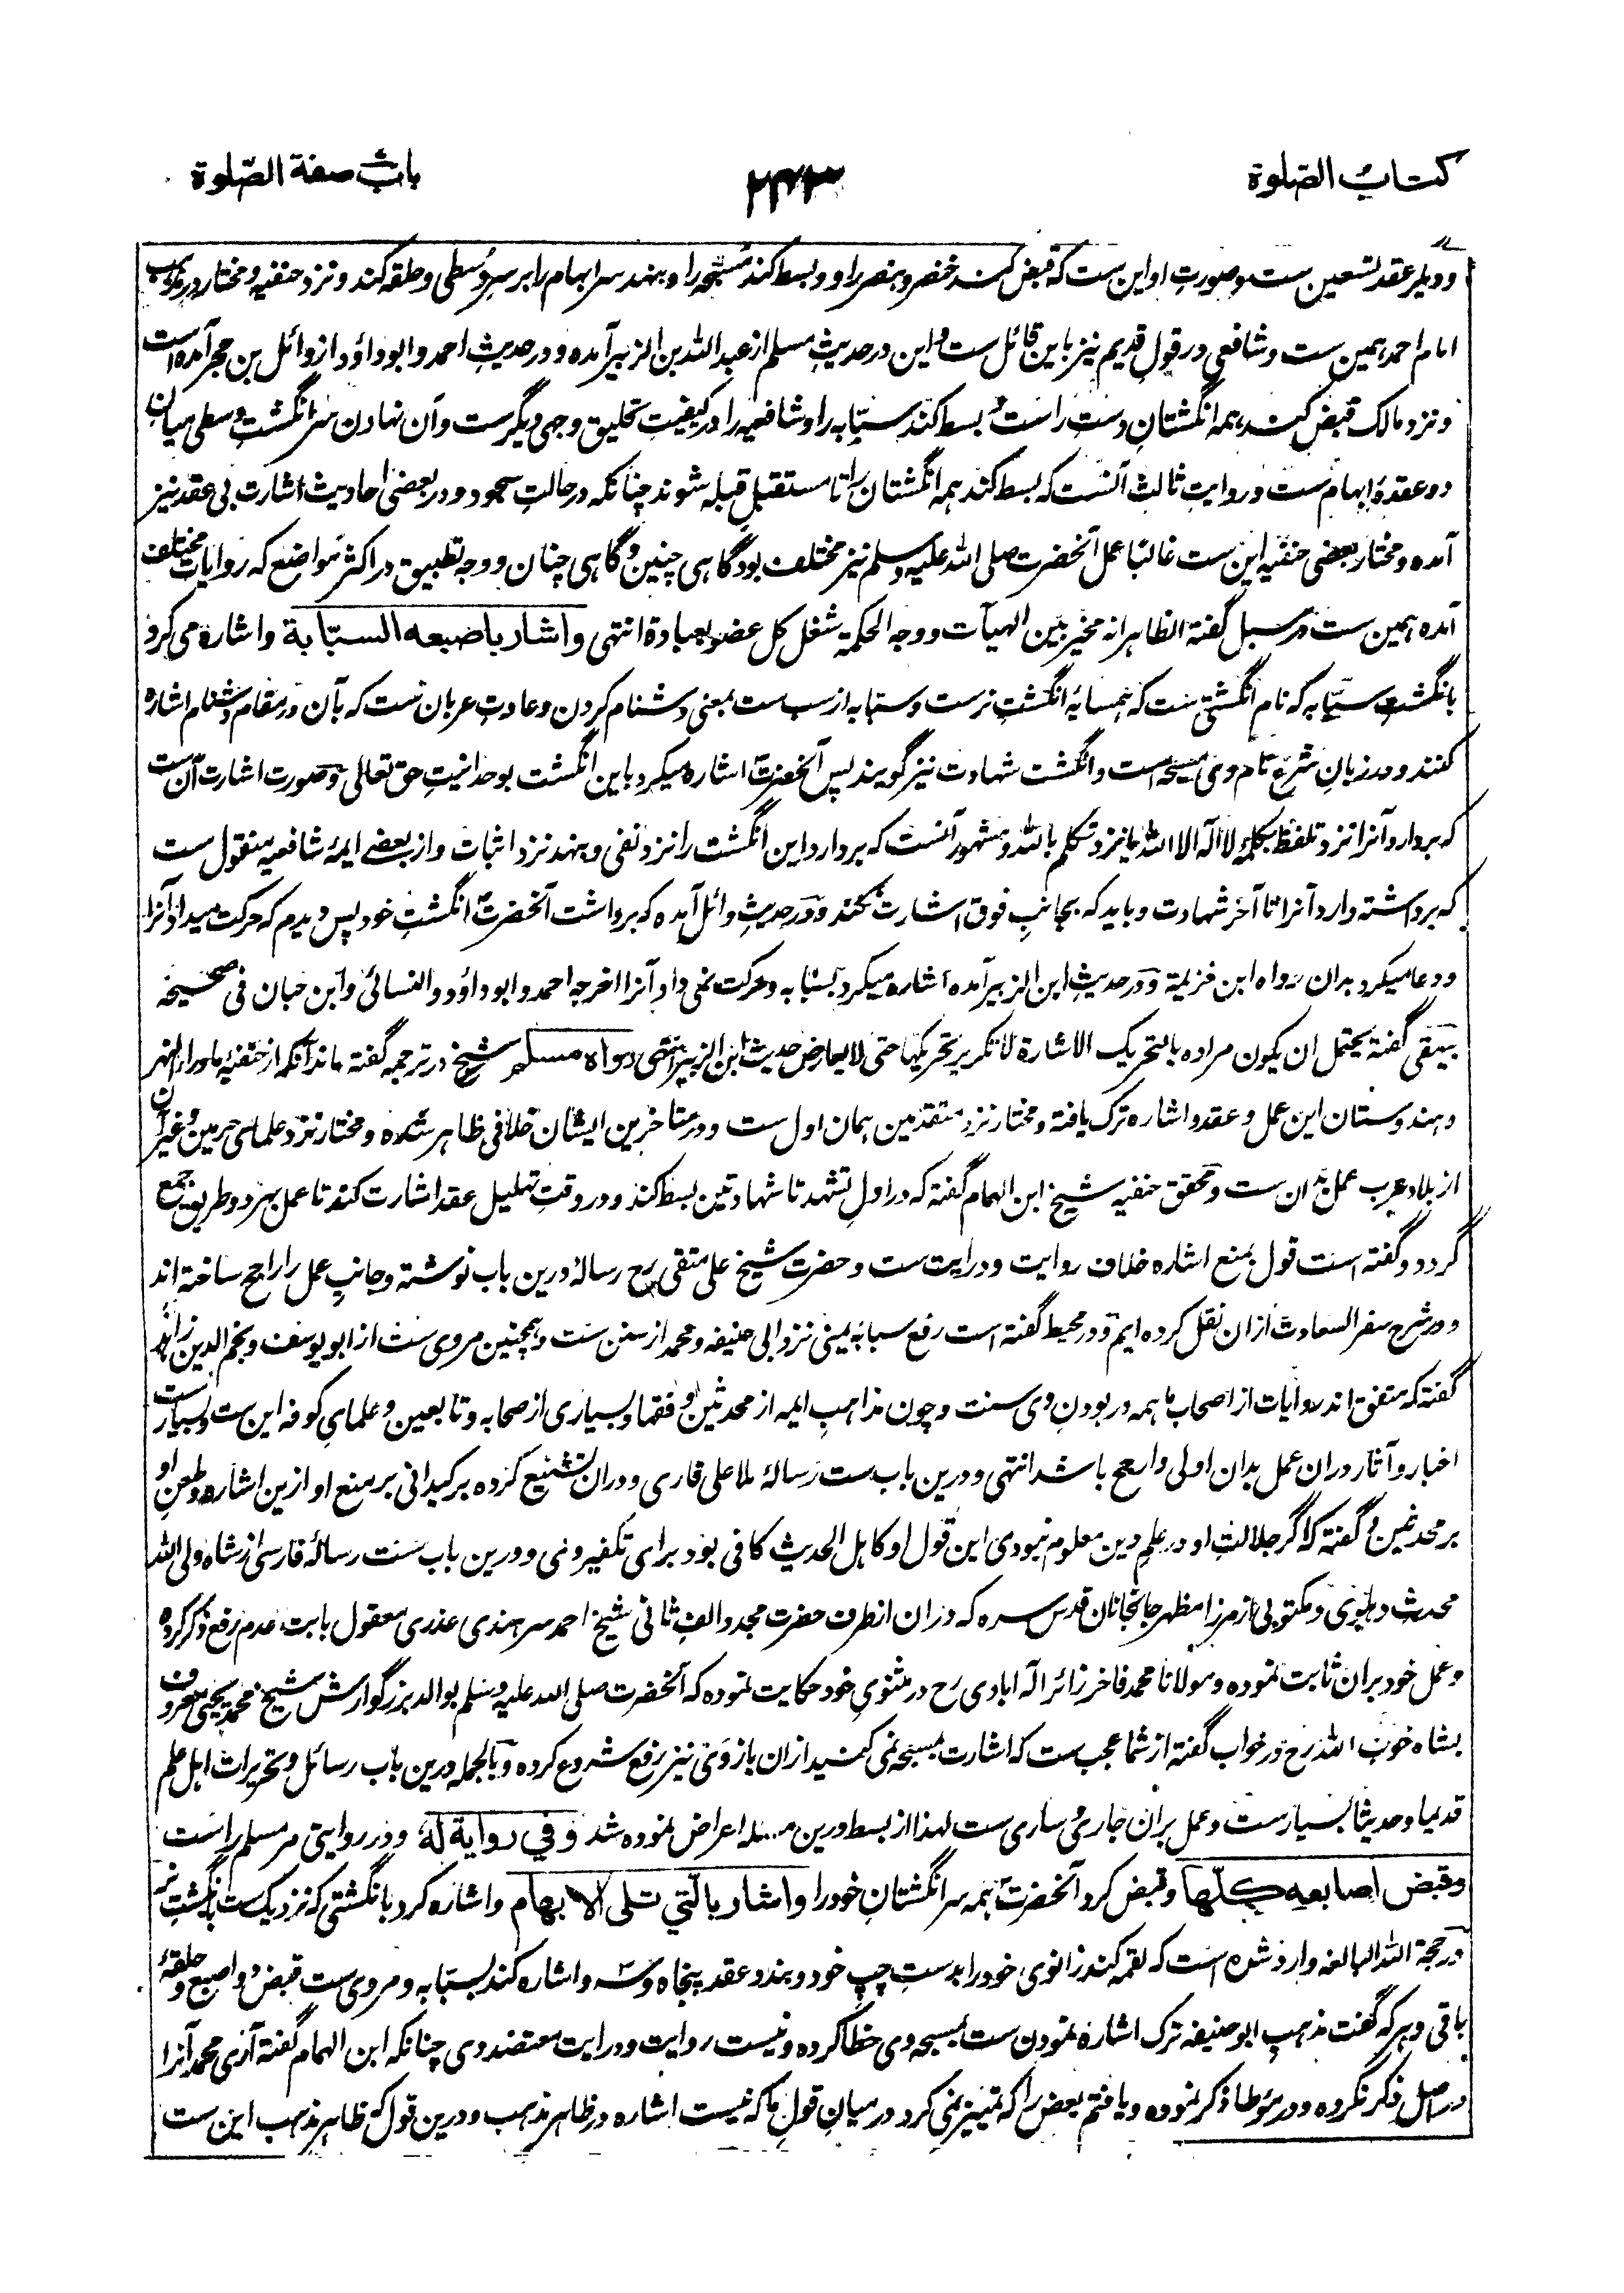 کتاب الصّلوة
۲۴۳
باب صفة الصّلوة
و دیگر عقد تسعین ست و صورتِ او این ست که قبض کند خنصر و بنصر را و بسط کند مسبحه را و بنهد سر ابهام را بر سرِ وسطی و حلقه کند و نزد حنفیه و مختار در مذهب
امام احمد همین ست و شافعی در قولِ قدیم نیز باین قائل ست و این در حدیثِ مسلم از عبد الله بن الزبیر آمده و در حدیثِ احمد و ابو داؤد از وائل بن حجر آمده است
و نزد مالک قبض کند همه انگشتانِ دستِ راست و بسط کند سبّابه را و شافعیه را در کیفیتِ تحلیق وجهی دیگرست و آن نهادن سر انگشتِ وسطی میانِ
دو عقدهٔ ابهام ست و روایتِ ثالث آنست که بسط کند همه انگشتان را تا مستقبلِ قبله شوند چنانکه در حالتِ سجود و در بعضی احادیث اشارت بی عقد نیز
آمده و مختار بعضی حنفیه این ست غالبًا عمل آنحضرت صلی الله علیه وسلم نیز مختلف بود گاهی چنین و گاهی چنان و وجه تطبیق در اکثر مواضع که روایات مختلف
آمده همین ست در سبل گفته الظاهر انه مخیر بین الهیآت و وجه الحکمة شغل کل عضو بعبادة انتهی واشار باصبعه السبّابة و اشاره می کرد
بانگشتِ سبّابه که نام انگشتی ست که همسایهٔ انگشتِ نرست و سبّابه از سب ست بمعنی دشنام کردن و عادتِ عربان ست که بآن در مقام دشنام اشاره
کنند و در زبانِ شرع نام وی مسبحه است و انگشت شهادت نیز گویند پس آنحضرتؐ اشاره میکرد باین انگشت بوحدانیتِ حق تعالی و صورت اشارت آن ست
که بردارد آنرا نزد تلفظ بکلمهٔ لا اله الا الله یا نزد تکلم بالله و مشهور آنست که بردارد این انگشت را نزد نفی و بنهد نزد اثبات و از بعضے ایمهٔ شافعیه منقول ست
که برداشته دارد آنرا تا آخر شهادت و باید که بجانبِ فوق اشارت نکند و در حدیثِ وائل آمده که برداشت آنحضرتؐ انگشتِ خود پس دیدم که حرکت میداد آنرا
و دعا میکرد بدان رواه ابن خزیمة و در حدیثِ ابن الزبیر آمده اشاره میکرد بسبّابه و حرکت نمی داد آنرا اخرجه احمد و ابو داؤد و النسائی و ابن حبان فی صحیحه
بیهقی گفته یحتمل ان یکون مراده بالتحریک الاشارة لا تکریر تحریکها حتی لا یعارض حدیث ابن الزبیر انتهی رواه مسلم شیخ در ترجمه گفته ماند آنکه از حنفیهٔ ماوراء النهر
و هندوستان این عمل و عقد و اشاره ترک یافته و مختار نزد متقدمین همان اول ست و در متاخرین ایشان خلافی ظاهر شده و مختار نزد علمای حرمین و غیر آن
از بلاد عرب عمل بدان ست و محقق حنفیه شیخ ابن الهمام گفته که در اولِ تشهد تا شهادتین بسط کند و در وقتِ تهلیل عقد اشارت کند تا عمل بهر دو طریق جمع
گردد و گفته است قول بمنع اشاره خلاف روایت و درایت ست و حضرت شیخ علی متقی رح رسالهٔ درین باب نوشته و جانبِ عمل را راجح ساخته اند
و در شرح سفر السعادت ازان نقل کرده ایم و در محیط گفته است رفع سبابهٔ یمنی نزد ابی حنیفه و محمد از سنن ست و همچنین مروی ست از ابو یوسف و نجم الدین زاهد
گفته که متفق اند روایات از اصحابِ ما همه در بودنِ وی سنت و چون مذاهبِ ایمه از محدثین و فقها و بسیاری از صحابه و تابعین و علمایِ کوفه این ست و بسیارست
اخبار و آثار دران عمل بدان اولی و ارجح باشد انتهی و درین باب ست رسالهٔ ملا علی قاری و دران تشنیع کرده بر کیدانی بر منع او ازین اشاره و طعن او
بر محدثین و گفته که اگر جلالتِ او در علم دین معلوم نبودی این قول او کاهل الحدیث کافی بود برای تکفیر وی و درین باب ست رسالهٔ فارسی از شاه ولی الله
محدث دهلوی و مکتوبی از مرزا مظهر جانجانان قدس سره که دران از طرف حضرت مجدد الفِ ثانی شیخ احمد سرهندی عذری معقول بابت عدم رفع ذکر کرده
و عمل خود بران ثابت نموده و مولانا محمد فاخر زائر اله ابادی رح در مثنویِ خود حکایت نموده که آنحضرت صلی الله علیه وسلم بوالد بزرگوارش شیخ محمد یحیی معروف
بشاه خوب الله رح در خواب گفته از شما عجب ست که اشارت مسبحه نمی کنید ازان باز وی نیز رفع شروع کرده و بالجمله درین باب رسائل و تحریرات اهل علم
قدیما و حدیثا بسیارست و عمل بران جاری و ساری ست لهذا از بسط درین مسئله اعراض نموده شد وفی روایة له و در روایتی مر مسلم راست
وقبض اصابعه کلّها و قبض کرد آنحضرتؐ همه سر انگشتانِ خود را واشار بالّتي تلی الابهام و اشاره کرد بانگشتی که نزدیک ست بانگشتِ نر
در حجة الله البالغه وارد شده است که لقمه کند زانوی خود را بدستِ چپ خود و بندد عقد پنجاه و سه و اشاره کند بسبّابه و مروی ست قبض دو اصبع و حلقهٔ
باقی و هر که گفت مذهبِ ابو حنیفه ترک اشاره نمودن ست بمسبحه وی خطا کرده و نیست روایت و درایت معتضد وی چنانکه ابن الهمام گفته آری محمد آنرا
در اصل ذکر نکرده و در مؤطا ذکر نموده و یافتم بعض را که تمییز نمی کرد در میانِ قولِ ما که نیست اشاره در ظاهر مذهب و درین قول که ظاهر مذهب این ست